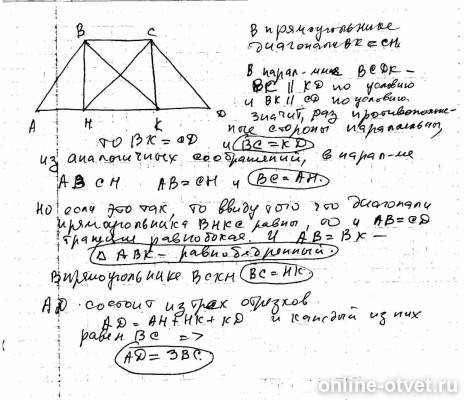 B C
A H K D
В прямоугольнике
диагонали BK = CH.
В парал-мме BCDK –
BC || KD по условию
и BK || CD по условию.
Значит, раз противополож-
ные стороны параллельны,
то BK = CD и BC = KD
из аналогичных соображений, в парал-ме
ABCH AB = CH и BC = AH.
Но если это так, то ввиду того что диагонали
прямоугольника BHKC равны, то и AB = CD
трапеция равнобокая. И AB = BK –
Δ ABK – равнобедренный.
В прямоугольнике BCKH BC = HK
AD состоит из трех отрезков
AD = AH + HK + KD и каждый из них
равен BC =>
AD = 3BC
online-otvet.ru